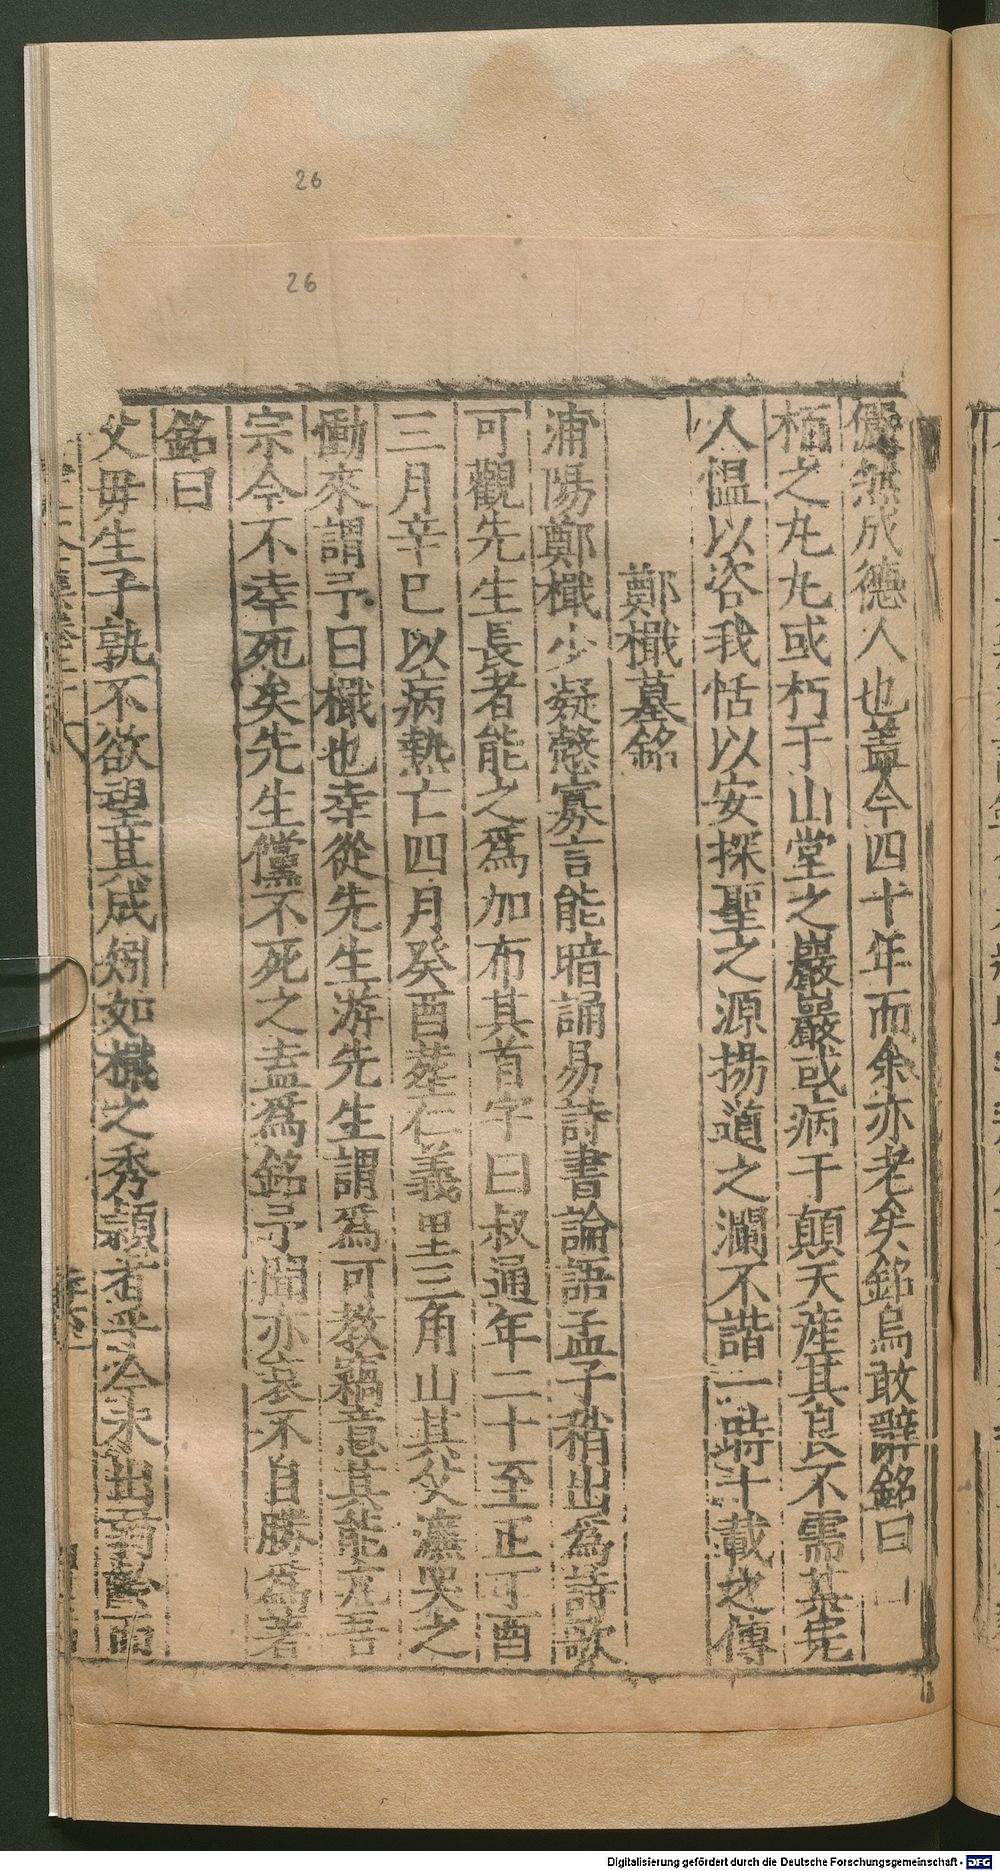 26
26
儼然成德人也盖今四十年而余亦老矣銘烏敢辭銘曰
栖之丸丸或朽于山堂之巖巖或病于顛天産其良不需其完
人慍以咨我恬以安探聖之源揚道之瀾不諧一時斗載之傳
鄭檝墓銘
浦陽鄭檝少凝慤寡言能暗誦易詩書論語孟子稍出為詩歌
可觀先生長者能之爲加布其首字曰叔通年二十至正丁酉
三月辛巳以病熱亡四月癸酉葬仁義里三角山其父濂哭之
慟來謂予曰檝也幸從先生游先生謂爲可教竊意其能亢吾
宗今不幸死矣先生儻不死之盍爲銘予聞亦哀不自勝爲著
銘曰
父毋生子孰不欲望其成矧如檝之秀穎者乎今未出而
Digitalisierung gefördert durch die Deutsche Forschungsgemeinschaft - DFG